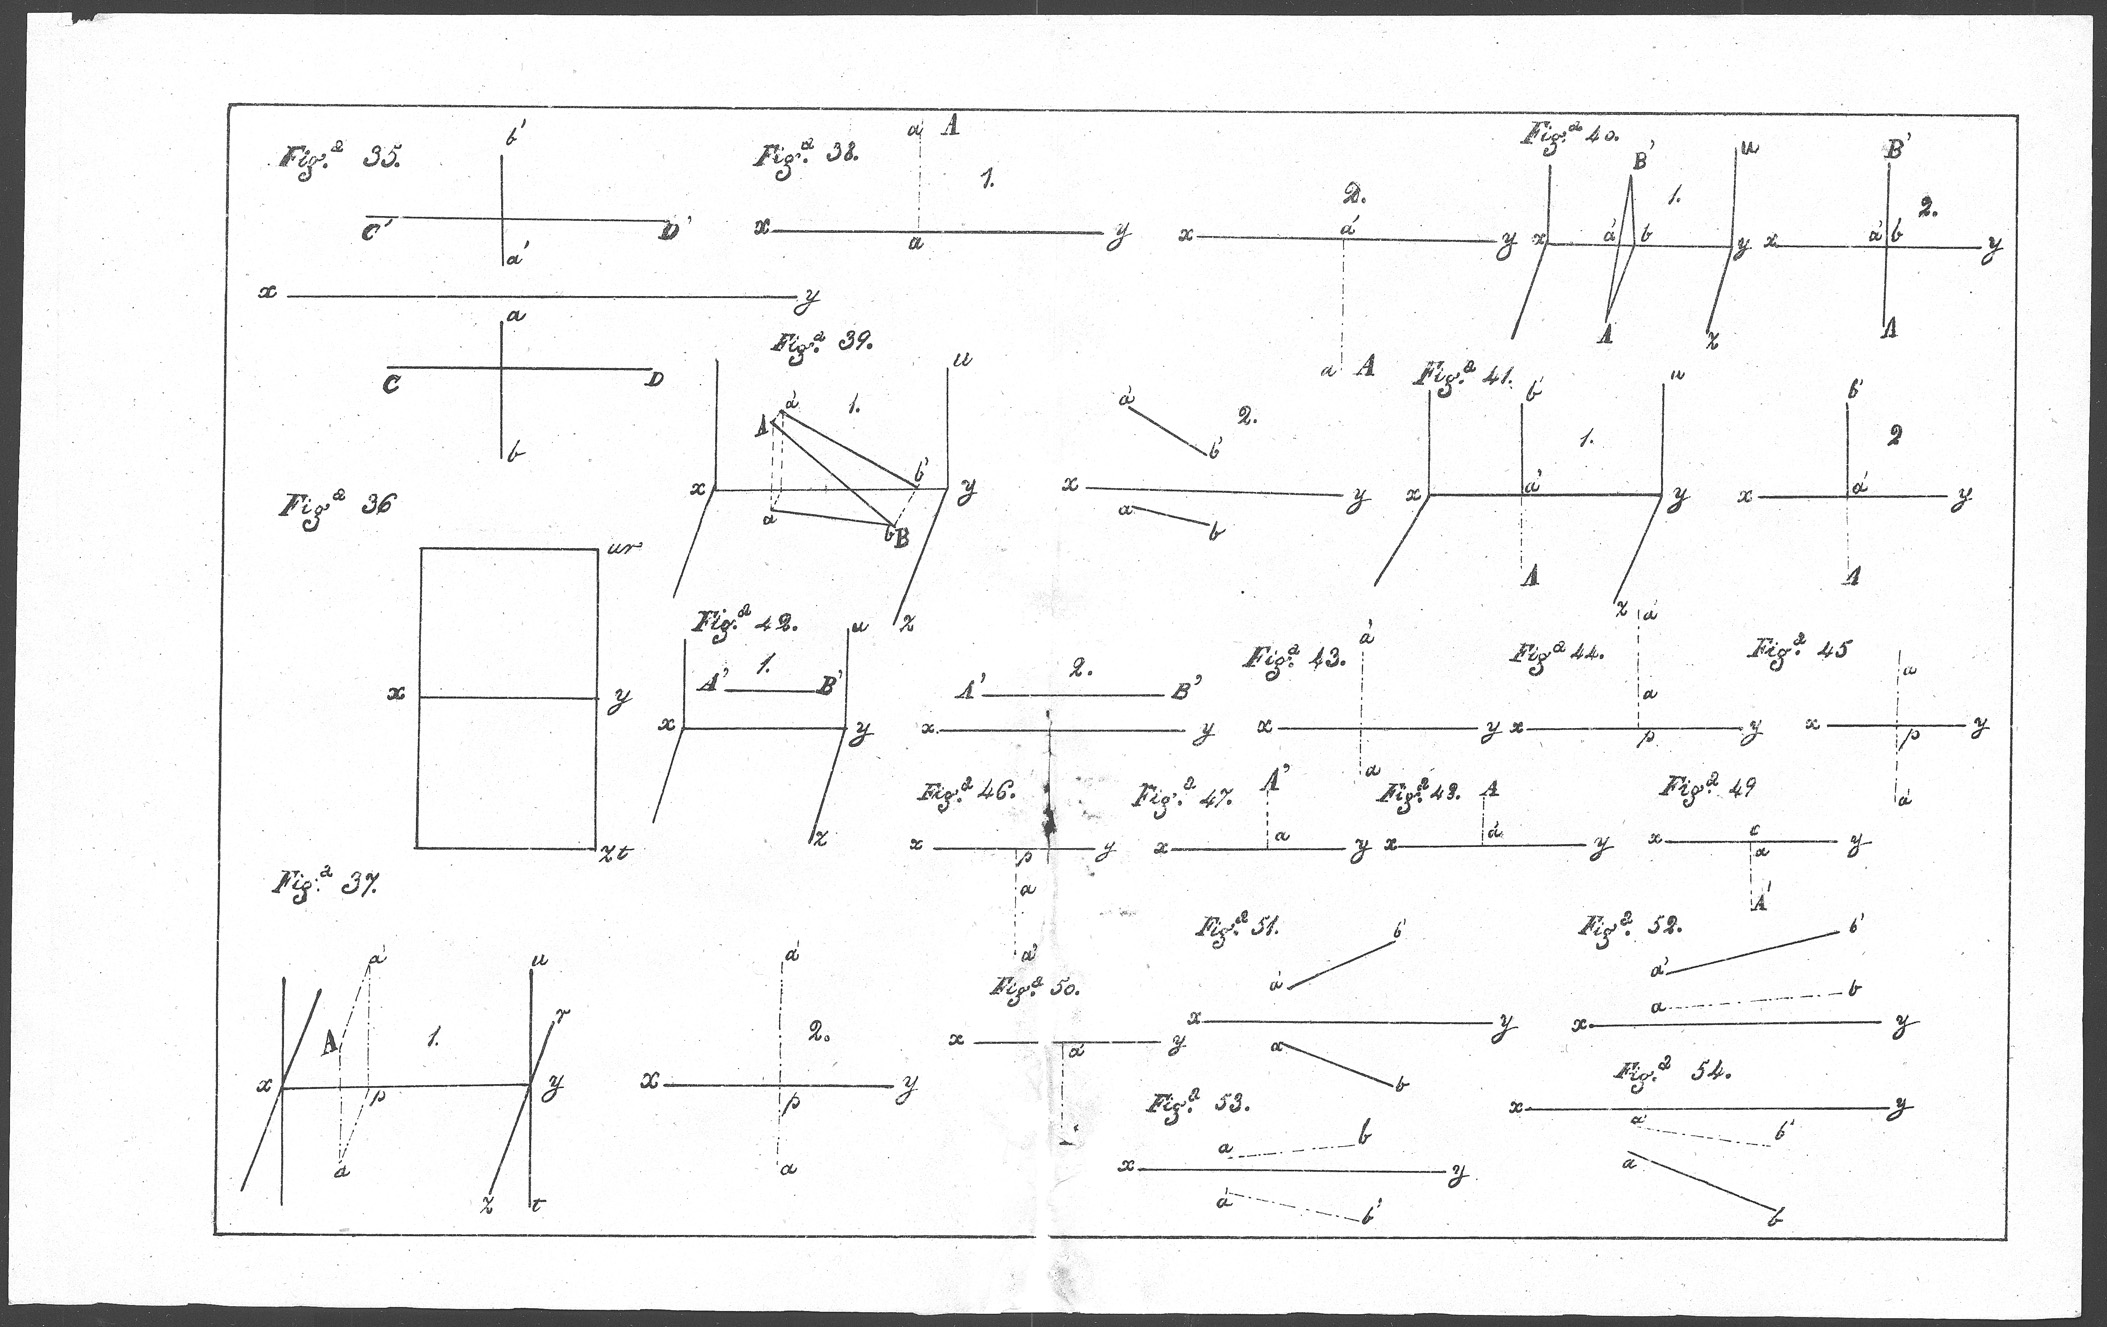 Fig.ª 35.
b'
C' D'
a'
x y
a
C D
b
Fig.ª 36
ur
x y
zt
Fig.ª 37.
a'
u
r
A
1.
x p y
a
z t
a'
2.
x y
p
a
Fig.ª 38.
a' A
1.
x y
a
2.
a'
x y
a A
Fig.ª 39.
u
a'
1.
A
b'
x y
a
b B
z
2.
a'
b'
x y
a
b
Fig.ª 40.
B' u
1.
x a' b y
A z
B'
2.
x a' b y
A
Fig.ª 41.
b' u
1.
x a' y
A
z
b'
2
x a' y
A
Fig.ª 42.
u
1.
A' B'
x y
z
2.
A' B'
x y
Fig.ª 43.
a'
x y
a
Fig.ª 44.
a'
a
x y
p
Fig.ª 45
a
x y
p
a'
Fig.ª 46.
x y
p
a
a'
Fig.ª 47.
A'
a
x y
Fig.ª 48.
A
a'
x y
Fig.ª 49
c
x y
a
A'
Fig.ª 50.
x y
a'
Fig.ª 51.
b'
a'
x y
a
b
Fig.ª 52.
b'
a'
b
a
x y
Fig.ª 53.
b
a
x y
a'
b'
Fig.ª 54.
x y
a'
b'
a
b